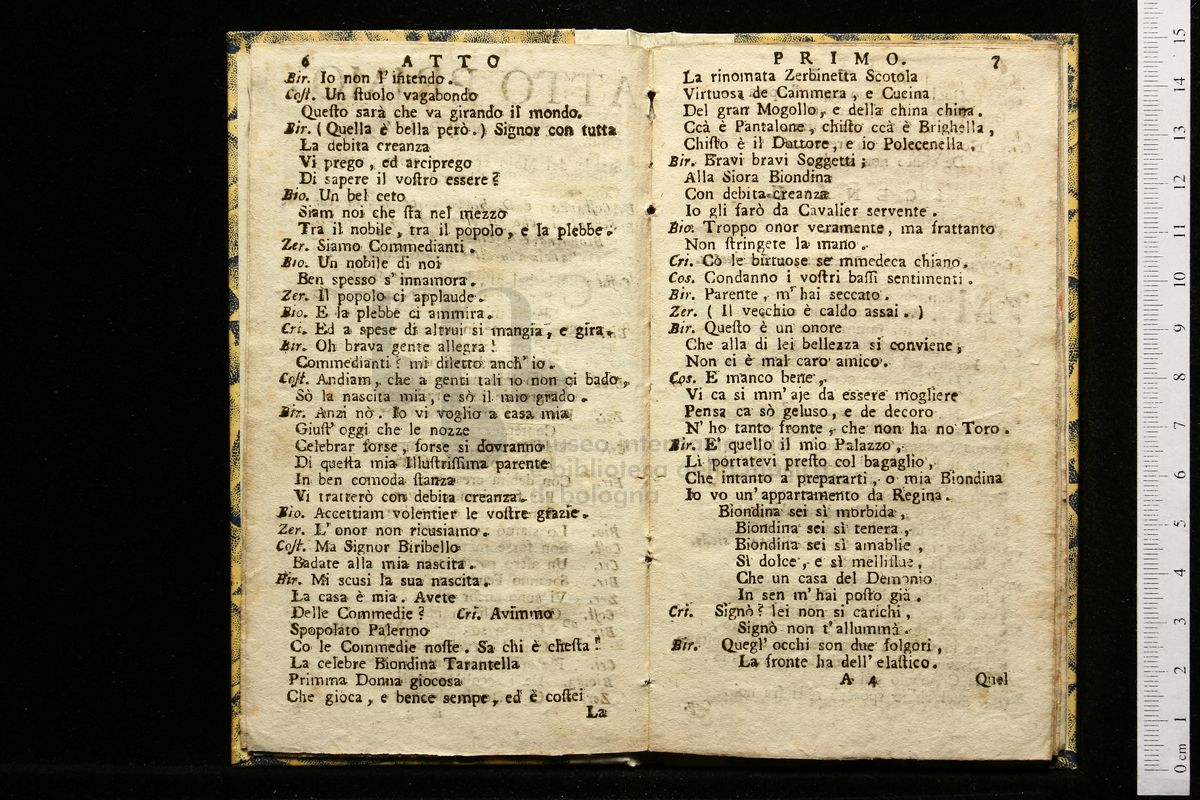 6 ATTO
Bir. Io non l'intendo.
Cost. Un stuolo vagabondo
Questo sarà che va girando il mondo.
Bir. (Quella è bella però.) Signor con tutta
La debita creanza
Vi prego, ed arciprego
Di sapere il vostro essere?
Bio. Un bel ceto
Siam noi che sta nel mezzo
Tra il nobile, tra il popolo, e la plebbe.
Zer. Siamo Commedianti.
Bio. Un nobile di noi
Ben spesso s'innamora.
Zer. Il popolo ci applaude.
Bio. E la plebbe ci ammira.
Cri. Ed a spese di altrui si mangia, e gira.
Bir. Oh brava gente allegra!
Commedianti? mi diletto anch'io.
Cost. Andiam, che a genti tali io non ci bado,
Sò la nascita mia, e sò il mio grado.
Bir. Anzi nò. Io vi voglio a casa mia
Giust' oggi che le nozze
Celebrar forse, forse si dovranno
Di questa mia Illustrissima parente
In ben comoda stanza
Vi tratterò con debita creanza.
Bio. Accettiam volentier le vostre grazie.
Zer. L'onor non ricusiamo.
Cost. Ma Signor Biribello
Badate alla mia nascita.
Bir. Mi scusi la sua nascita.
La casa è mia. Avete
Delle Commedie? Cri. Avimmo
Spopolato Palermo
Co le Commedie noste. Sa chi è chesta?
La celebre Biondina Tarantella
Primma Donna giocosa
Che gioca, e bence sempe, ed è costei
La
PRIMO. 7
La rinomata Zerbinetta Scotola
Virtuosa de Cammera, e Cucina
Del gran Mogollo, e della china china.
Ccà è Pantalone, chisto ccà è Brighella,
Chisto è il Dattore, e io Polecenella.
Bir. Bravi bravi Soggetti;
Alla Siora Biondina
Con debita creanza
Io gli farò da Cavalier servente.
Bio. Troppo onor veramente, ma frattanto
Non stringete la mano.
Cri. Cò le birtuose se mmedeca chiano.
Cos. Condanno i vostri bassi sentimenti.
Bir. Parente, m'hai seccato.
Zer. (Il vecchio è caldo assai.)
Bir. Questo è un onore
Che alla di lei bellezza si conviene,
Non ci è mal caro amico.
Cos. E manco bene,
Vi ca si mm'aje da essere mogliere
Pensa ca sò geluso, e de decoro
N'ho tanto fronte, che non ha no Toro.
Bir. E' quello il mio Palazzo,
Lì portatevi presto col bagaglio,
Che intanto a prepararti, o mia Biondina
Io vo un'appartamento da Regina.
Biondina sei sì morbida,
Biondina sei sì tenera,
Biondina sei sì amabile,
Sì dolce, e sì melliflue,
Che un casa del Demonio
In sen m'hai posto già.
Cri. Signò? lei non si carichi,
Signò non t'allummà.
Bir. Quegl' occhi son due folgori,
La fronte ha dell' elastico.
A 4 Quel
museo
biblioteca
di bologna
0 cm 1 2 3 4 5 6 7 8 9 10 11 12 13 14 15